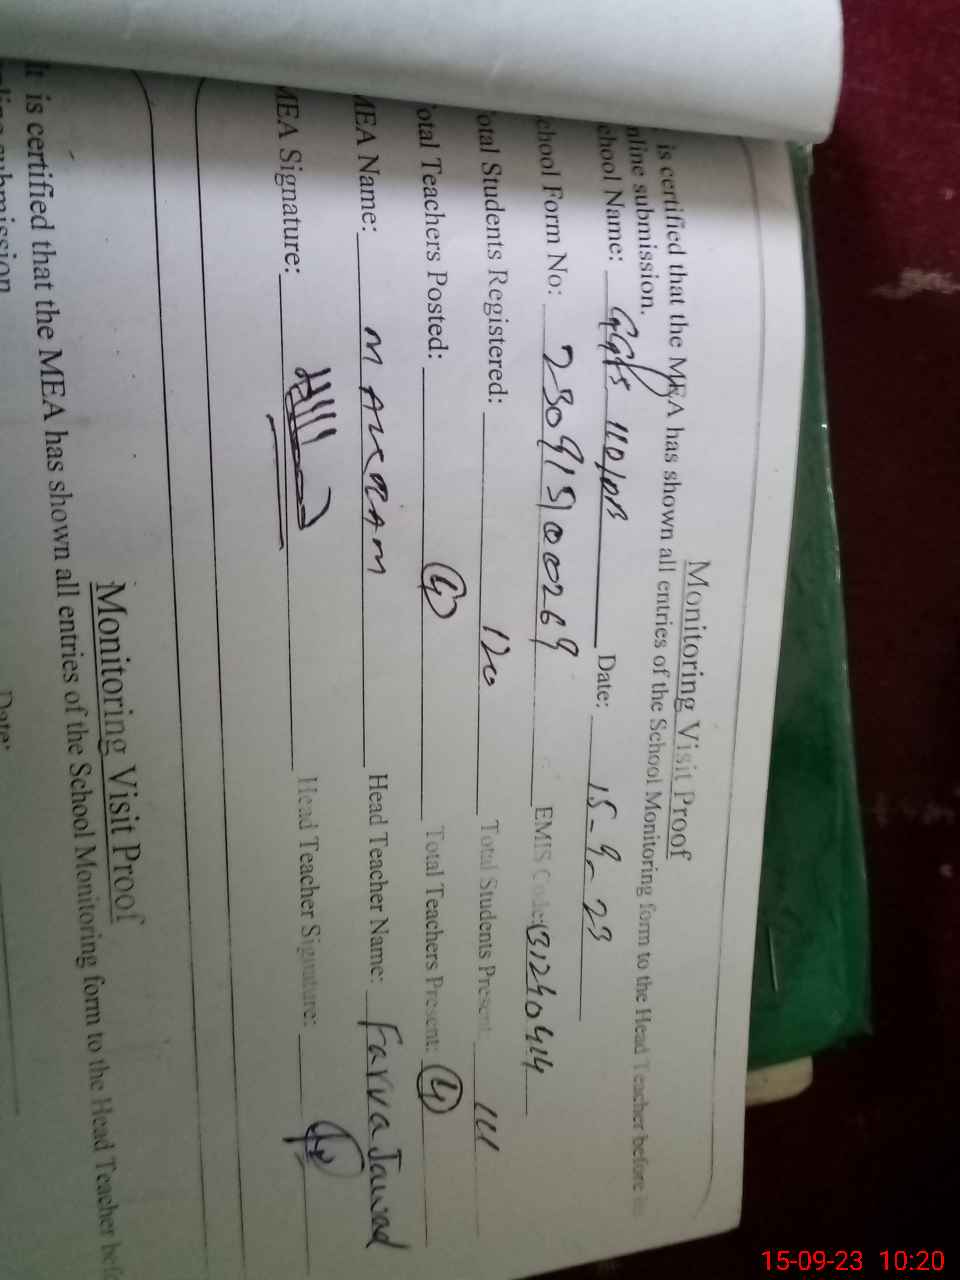 Monitoring Visit Proof
is certified that the MEA has shown all entries of the School Monitoring form to the Head Teacher before
nline submission.
chool Name: 110/DB Date: 15-9-23
chool Form No: EMIS Code: 31240414
otal Students Registered: 120 Total Students Present 111
otal Teachers Posted: 4 Total Teachers Present: 4
MEA Name: M AKRAM Head Teacher Name: Farva Jawad
MEA Signature: Head Teacher Signature:
Monitoring Visit Proof
It is certified that the MEA has shown all entries of the School Monitoring form to the Head Teacher befo
nline submission
Date:
15-09-23 10:20